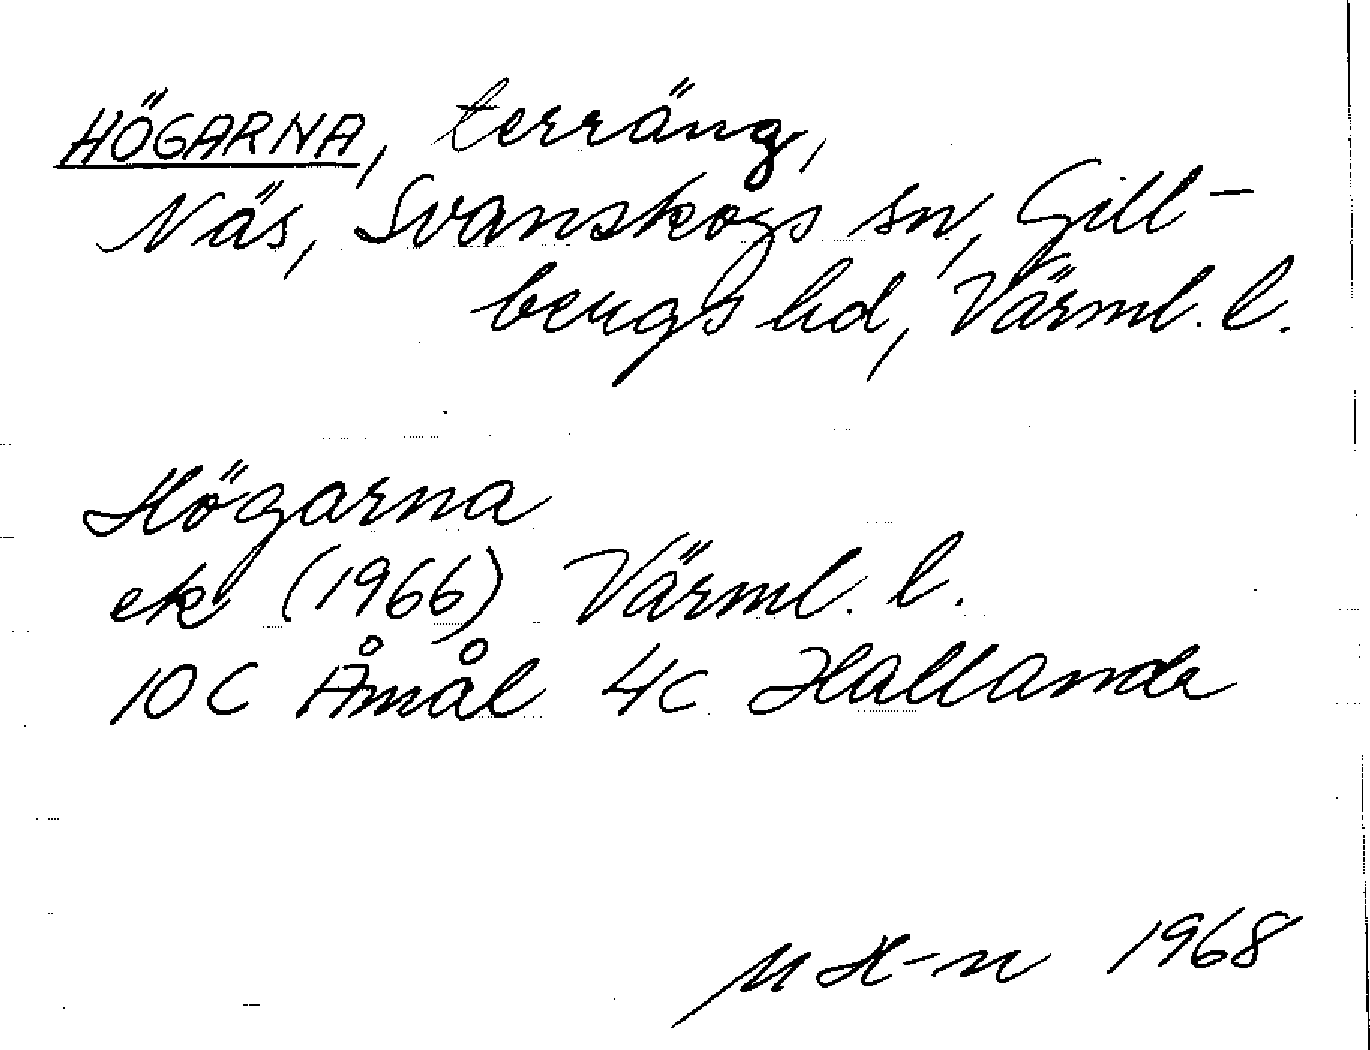 HÖGARNA, terräng,
Näs, Svanskogs sn, Gill-
bergs hd, Värml. l.
Högarna
ek (1966) Värml. l.
10C Åmål 4c Hallanda
M H-n 1968